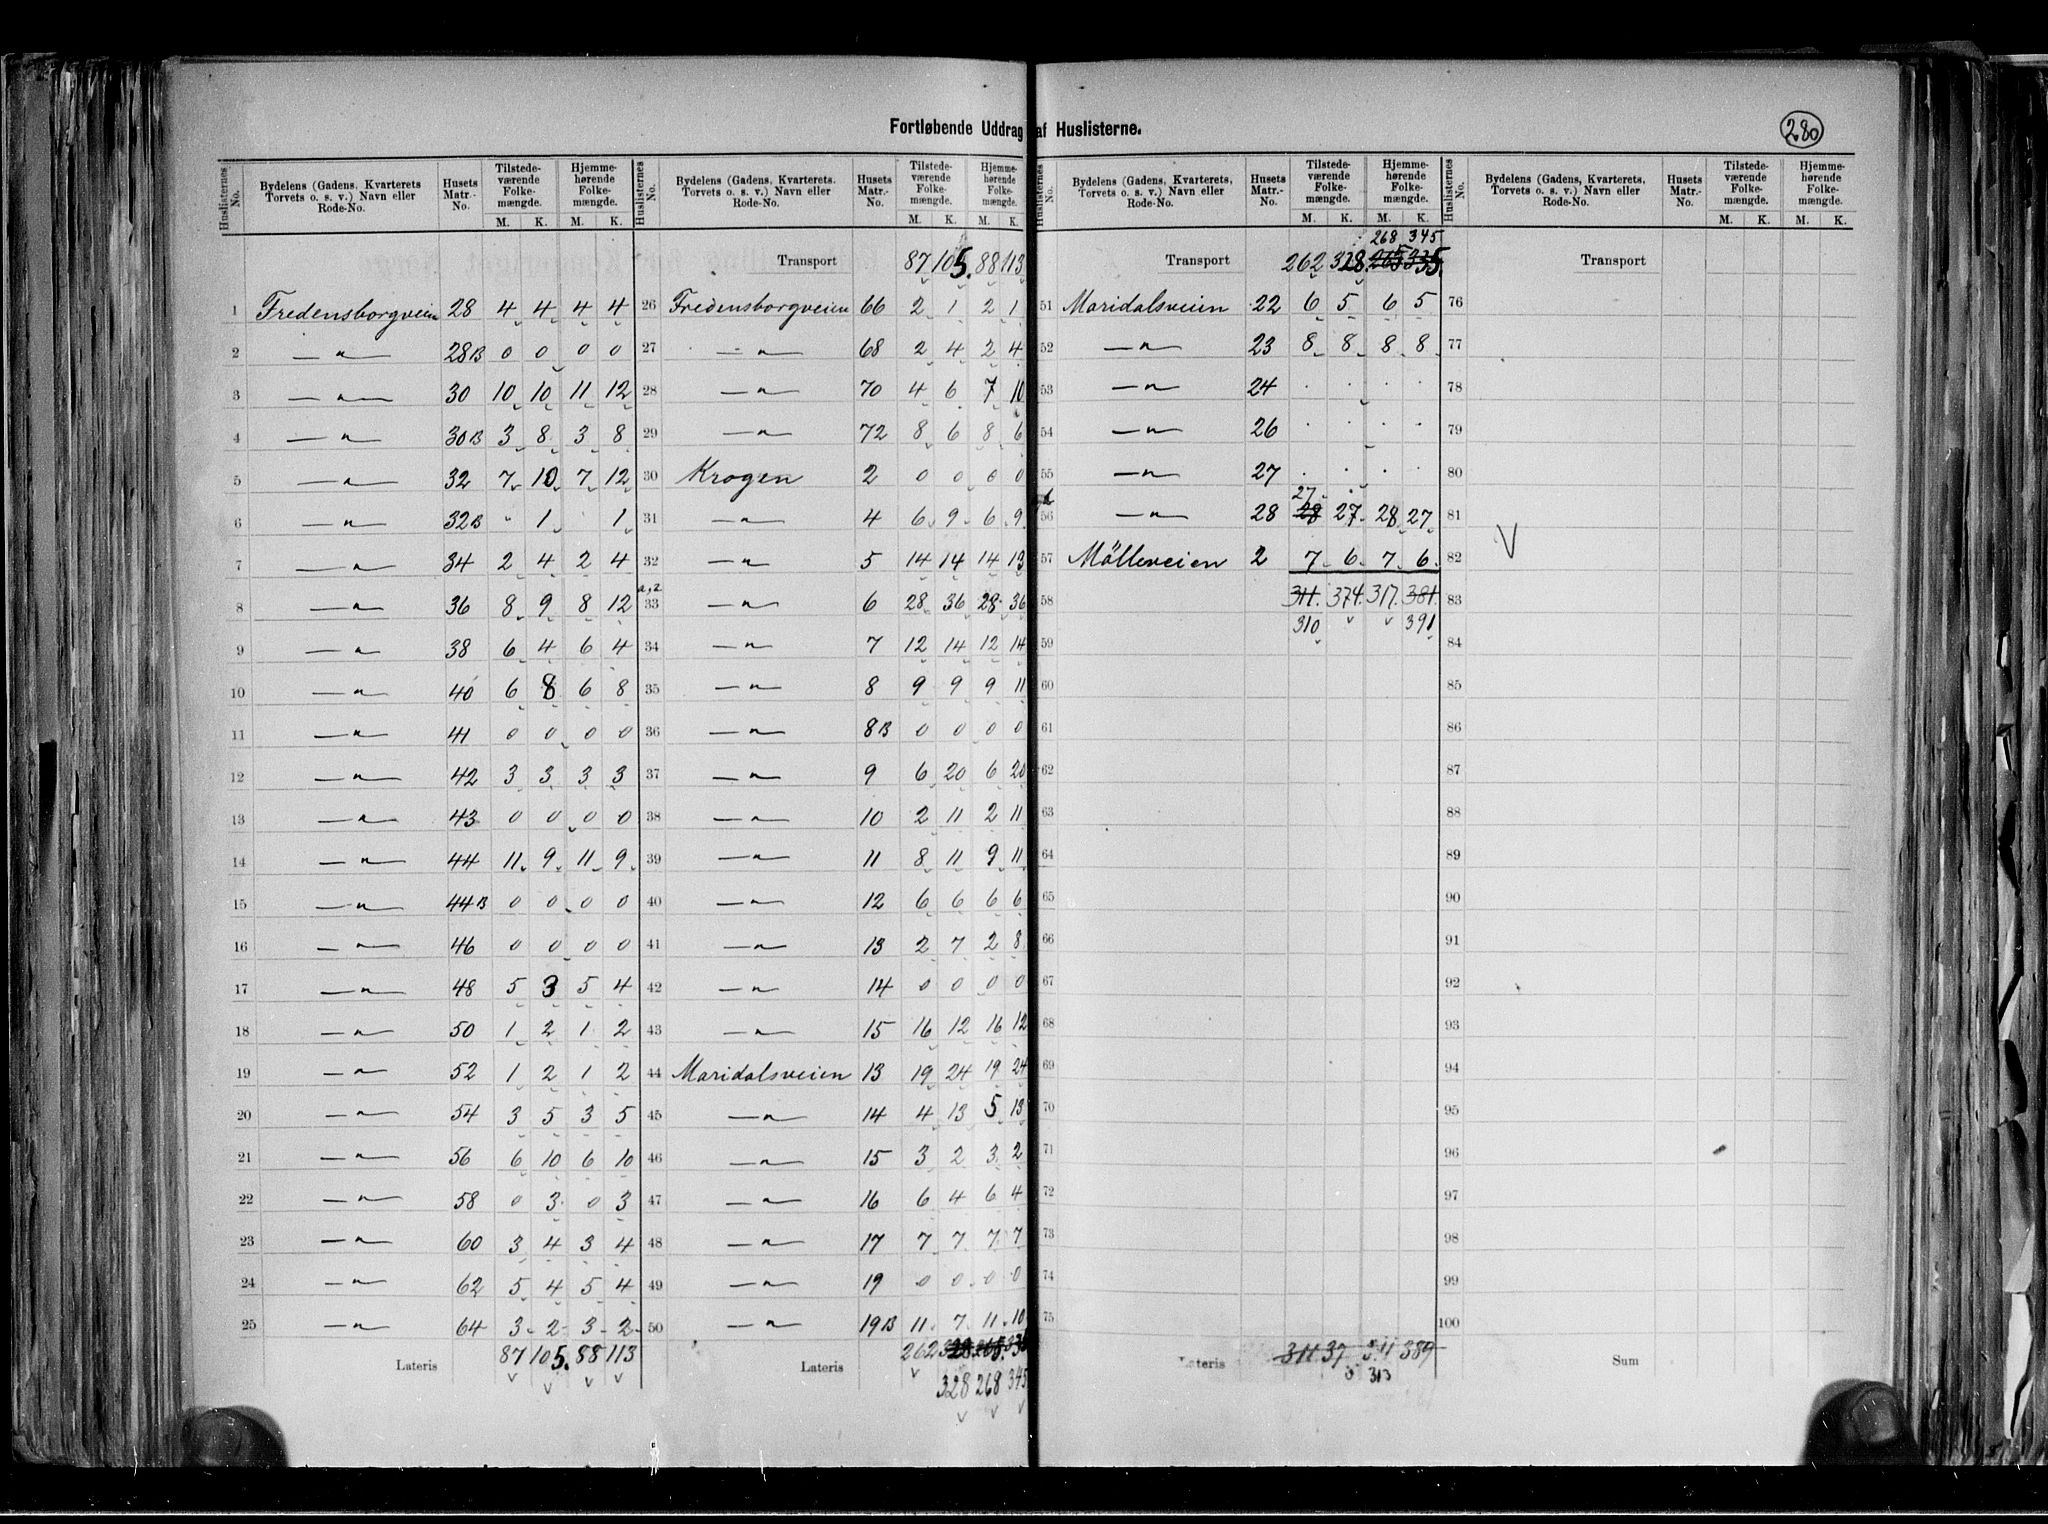 Fortløbende Uddrag af Huslisterne.
280
Huslisternes No. | Bydelens (Gadens, Kvarterets Torvets o. s. v.) Navn eller Rode-No. | Husets Matr.-No. | Tilstedeværende Folkemængde. M. K. | Hjemmehørende Folkemængde. M. K.
1 Fredensborgveien 28 4 4 4 4
2 — " — 28B 0 0 0 0
3 — " — 30 10 10 11 12
4 — " — 30B 3 8 3 8
5 — " — 32 7 10 7 12
6 — " — 32B " 1 1
7 — " — 34 2 4 2 4
8 — " — 36 8 9 8 12
9 — " — 38 6 4 6 4
10 — " — 40 6 8 6 8
11 — " — 41 0 0 0 0
12 — " — 42 3 3 3 3
13 — " — 43 0 0 0 0
14 — " — 44 11 9 11 9
15 — " — 44B 0 0 0 0
16 — " — 46 0 0 0 0
17 — " — 48 5 3 5 4
18 — " — 50 1 2 1 2
19 — " — 52 1 2 1 2
20 — " — 54 3 5 3 5
21 — " — 56 6 10 6 10
22 — " — 58 0 3 0 3
23 — " — 60 3 4 3 4
24 — " — 62 5 4 5 4
25 — " — 64 3 2 3 2
Lateris 87 105. 88 113
Huslisternes No. | Bydelens (Gadens, Kvarterets. Torvets o. s. v.) Navn eller Rode-No. | Husets Matr.-No. | Tilstedeværende Folkemængde. M. K. | Hjemmehørende Folkemængde. M. K.
Transport 87 105. 88 113
26 Fredensborgveien 66 2 1 2 1
27 — " — 68 2 4 2 4
28 — " — 70 4 6 7 10
29 — " — 72 8 6 8 6
30 Krogen 2 0 0 0 0
31 — " — 4 6 9 6 9
32 — " — 5 14 14 14 13
33 — " — 6 28 36 28 36
34 — " — 7 12 14 12 14
35 — " — 8 9 9 9 11
36 — " — 8B 0 0 0 0
37 — " — 9 6 20 6 20
38 — " — 10 2 11 2 11
39 — " — 11 8 11 9 11
40 — " — 12 6 6 6 6
41 — " — 13 2 7 2 8
42 — " — 14 0 0 0 0
43 — " — 15 16 12 16 12
44 Maridalsveien 13 19 24 19 24
45 — " — 14 4 13 5 13
46 — " — 15 3 2 3 2
47 — " — 16 6 4 6 4
48 — " — 17 7 7 7 7
49 — " — 19 0 0 0 0
50 — " — 19B 11 7 11 10
Lateris 262
328 268 345
Huslisternes No. | Bydelens (Gadens, Kvarterets, Torvets o. s. v.) Navn eller Rode-No. | Husets Matr.-No. | Tilstedeværende Folkemængde. M. K. | Hjemmehørende Folkemængde. M. K.
268 345
Transport 262 328 265 335
51 Maridalsveien 22 6 5 6 5
52 — " — 23 8 8 8 8
53 — " — 24 · · · ·
54 — " — 26 · · · ·
55 — " — 27 · · · ·
27
56 — " — 28 28 27 28 27
57 Mölleveien 2 7 6 7 6
58 311. 374. 317. 381.
310 391
59
60
61
62
63
64
65
66
67
68
69
70
71
72
73
74
75
Lateris 311 37 389
313
Huslisternes No. | Bydelens (Gadens, Kvarterets, Torvets o. s. v.) Navn eller Rode-No. | Husets Matr.-No. | Tilstedeværende Folkemængde. M. K. | Hjemmehørende Folkemængde. M. K.
Transport
76
77
78
79
80
81
82
83
84
85
86
87
88
89
90
91
92
93
94
95
96
97
98
99
100
Sum